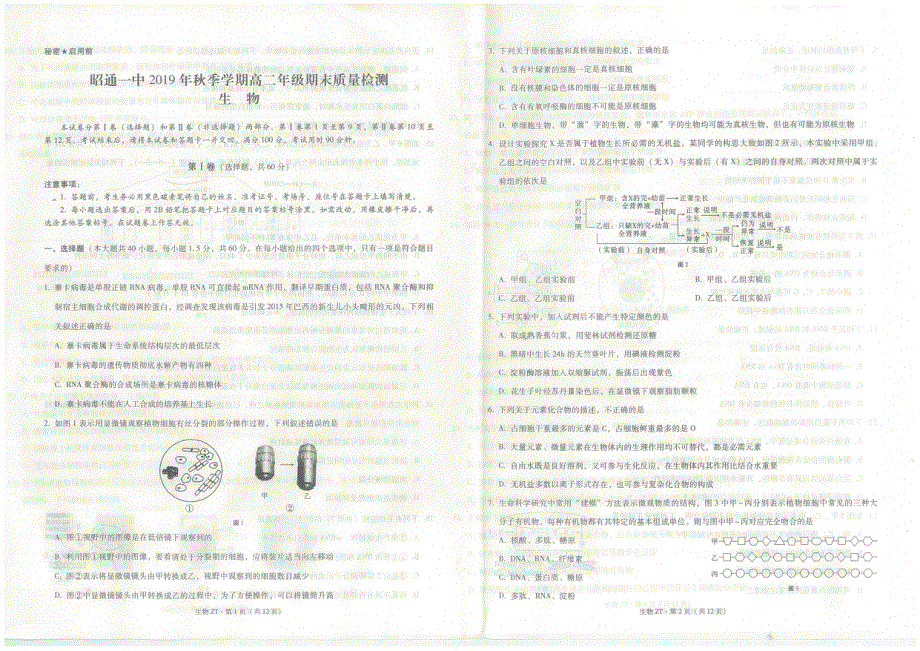 秘密★启用前
昭通一中2019年秋季学期高二年级期末质量检测
生 物
本试卷分第Ⅰ卷（选择题）和第Ⅱ卷（非选择题）两部分。第Ⅰ卷第1页至第9页，第Ⅱ卷第10页至
第12页。考试结束后，请将本试卷和答题卡一并交回。满分100分，考试用时90分钟。
第Ⅰ卷（选择题，共60分）
注意事项：
1. 答题前，考生务必用黑色碳素笔将自己的姓名、准考证号、考场号、座位号在答题卡上填写清楚。
2. 每小题选出答案后，用2B铅笔把答题卡上对应题目的答案标号涂黑。如需改动，用橡皮擦干净后，再
选涂其他答案标号。在试题卷上作答无效。
一、选择题（本大题共40小题，每小题1.5分，共60分。在每小题给出的四个选项中，只有一项是符合题目
要求的）
1. 寨卡病毒是单股正链RNA病毒，单股RNA可直接起mRNA作用，翻译早期蛋白质，包括RNA聚合酶和抑
制宿主细胞合成代谢的调控蛋白，经调查发现该病毒是引发2015年巴西的新生儿小头畸形的元凶，下列相
关叙述正确的是
A. 寨卡病毒属于生命系统结构层次的最低层次
B. 寨卡病毒的遗传物质彻底水解产物有四种
C. RNA聚合酶的合成场所是寨卡病毒的核糖体
D. 寨卡病毒不能在人工合成的培养基上生长
2. 如图1表示用显微镜观察植物细胞有丝分裂的部分操作过程，下列叙述错误的是
甲
乙
①
②
图1
A. 图①视野中的图像是在低倍镜下观察到的
B. 利用图①视野中的图像，要看清处于分裂期的细胞，应将装片适当向左移动
C. 图②表示将显微镜镜头由甲转换成乙，视野中观察到的细胞数目减少
D. 图②中显微镜镜头由甲转换成乙的过程中，为了方便操作，可以将镜筒升高
生物ZT·第1页（共12页）
3. 下列关于原核细胞和真核细胞的叙述，正确的是
A. 含有叶绿素的细胞一定是真核细胞
B. 没有核膜和染色体的细胞一定是原核细胞
C. 含有有氧呼吸酶的细胞不可能是原核细胞
D. 单细胞生物、带“菌”字的生物、带“藻”字的生物均可能为真核生物，但也有可能为原核生物
4. 设计实验探究X是否属于植物生长所必需的无机盐，某同学的构思大致如图2所示，本实验中采用甲组、
乙组之间的空白对照，以及乙组中实验前（无X）与实验后（有X）之间的自身对照。两次对照中属于实
验组的依次是
空白对照
甲组：含X的完全营养液+幼苗
正常生长
乙组：只缺X的完全营养液+幼苗
一段时间
正常生长
说明
不是必需无机盐
生长异常
+X
一段时间
仍为异常
说明
不是
恢复正常
说明
是
（实验前）自身对照（实验后）
图2
A. 甲组、乙组实验前
B. 甲组、乙组实验后
C. 乙组、乙组实验前
D. 乙组、乙组实验后
5. 下列实验中，加入试剂后不能产生特定颜色的是
A. 取成熟香蕉匀浆，用斐林试剂检测还原糖
B. 黑暗中生长24h的天竺葵叶片，用碘液检测淀粉
C. 淀粉酶溶液加入双缩脲试剂，振荡后出现紫色
D. 花生子叶经苏丹Ⅲ染色后，在显微镜下观察脂肪颗粒
6. 下列关于元素化合物的描述，不正确的是
A. 占细胞干重最多的元素是C，占细胞鲜重最多的是O
B. 大量元素、微量元素在生物体内的生理作用均不可替代，都是必需元素
C. 自由水既是良好溶剂，又可参与生化反应，在生物体内其作用比结合水重要
D. 无机盐多数以离子形式存在，也可参与复杂化合物的构成
7. 生命科学研究中常用“建模”方法表示微观物质的结构，图3中甲~丙分别表示植物细胞中常见的三种大
分子有机物，每种有机物都有其特定的基本组成单位。则与图中甲~丙对应完全吻合的是
A. 核酸、多肽、糖原
B. DNA、RNA、纤维素
C. DNA、蛋白质、糖原
D. 多肽、RNA、淀粉
甲
乙
丙
图3
生物ZT·第2页（共12页）